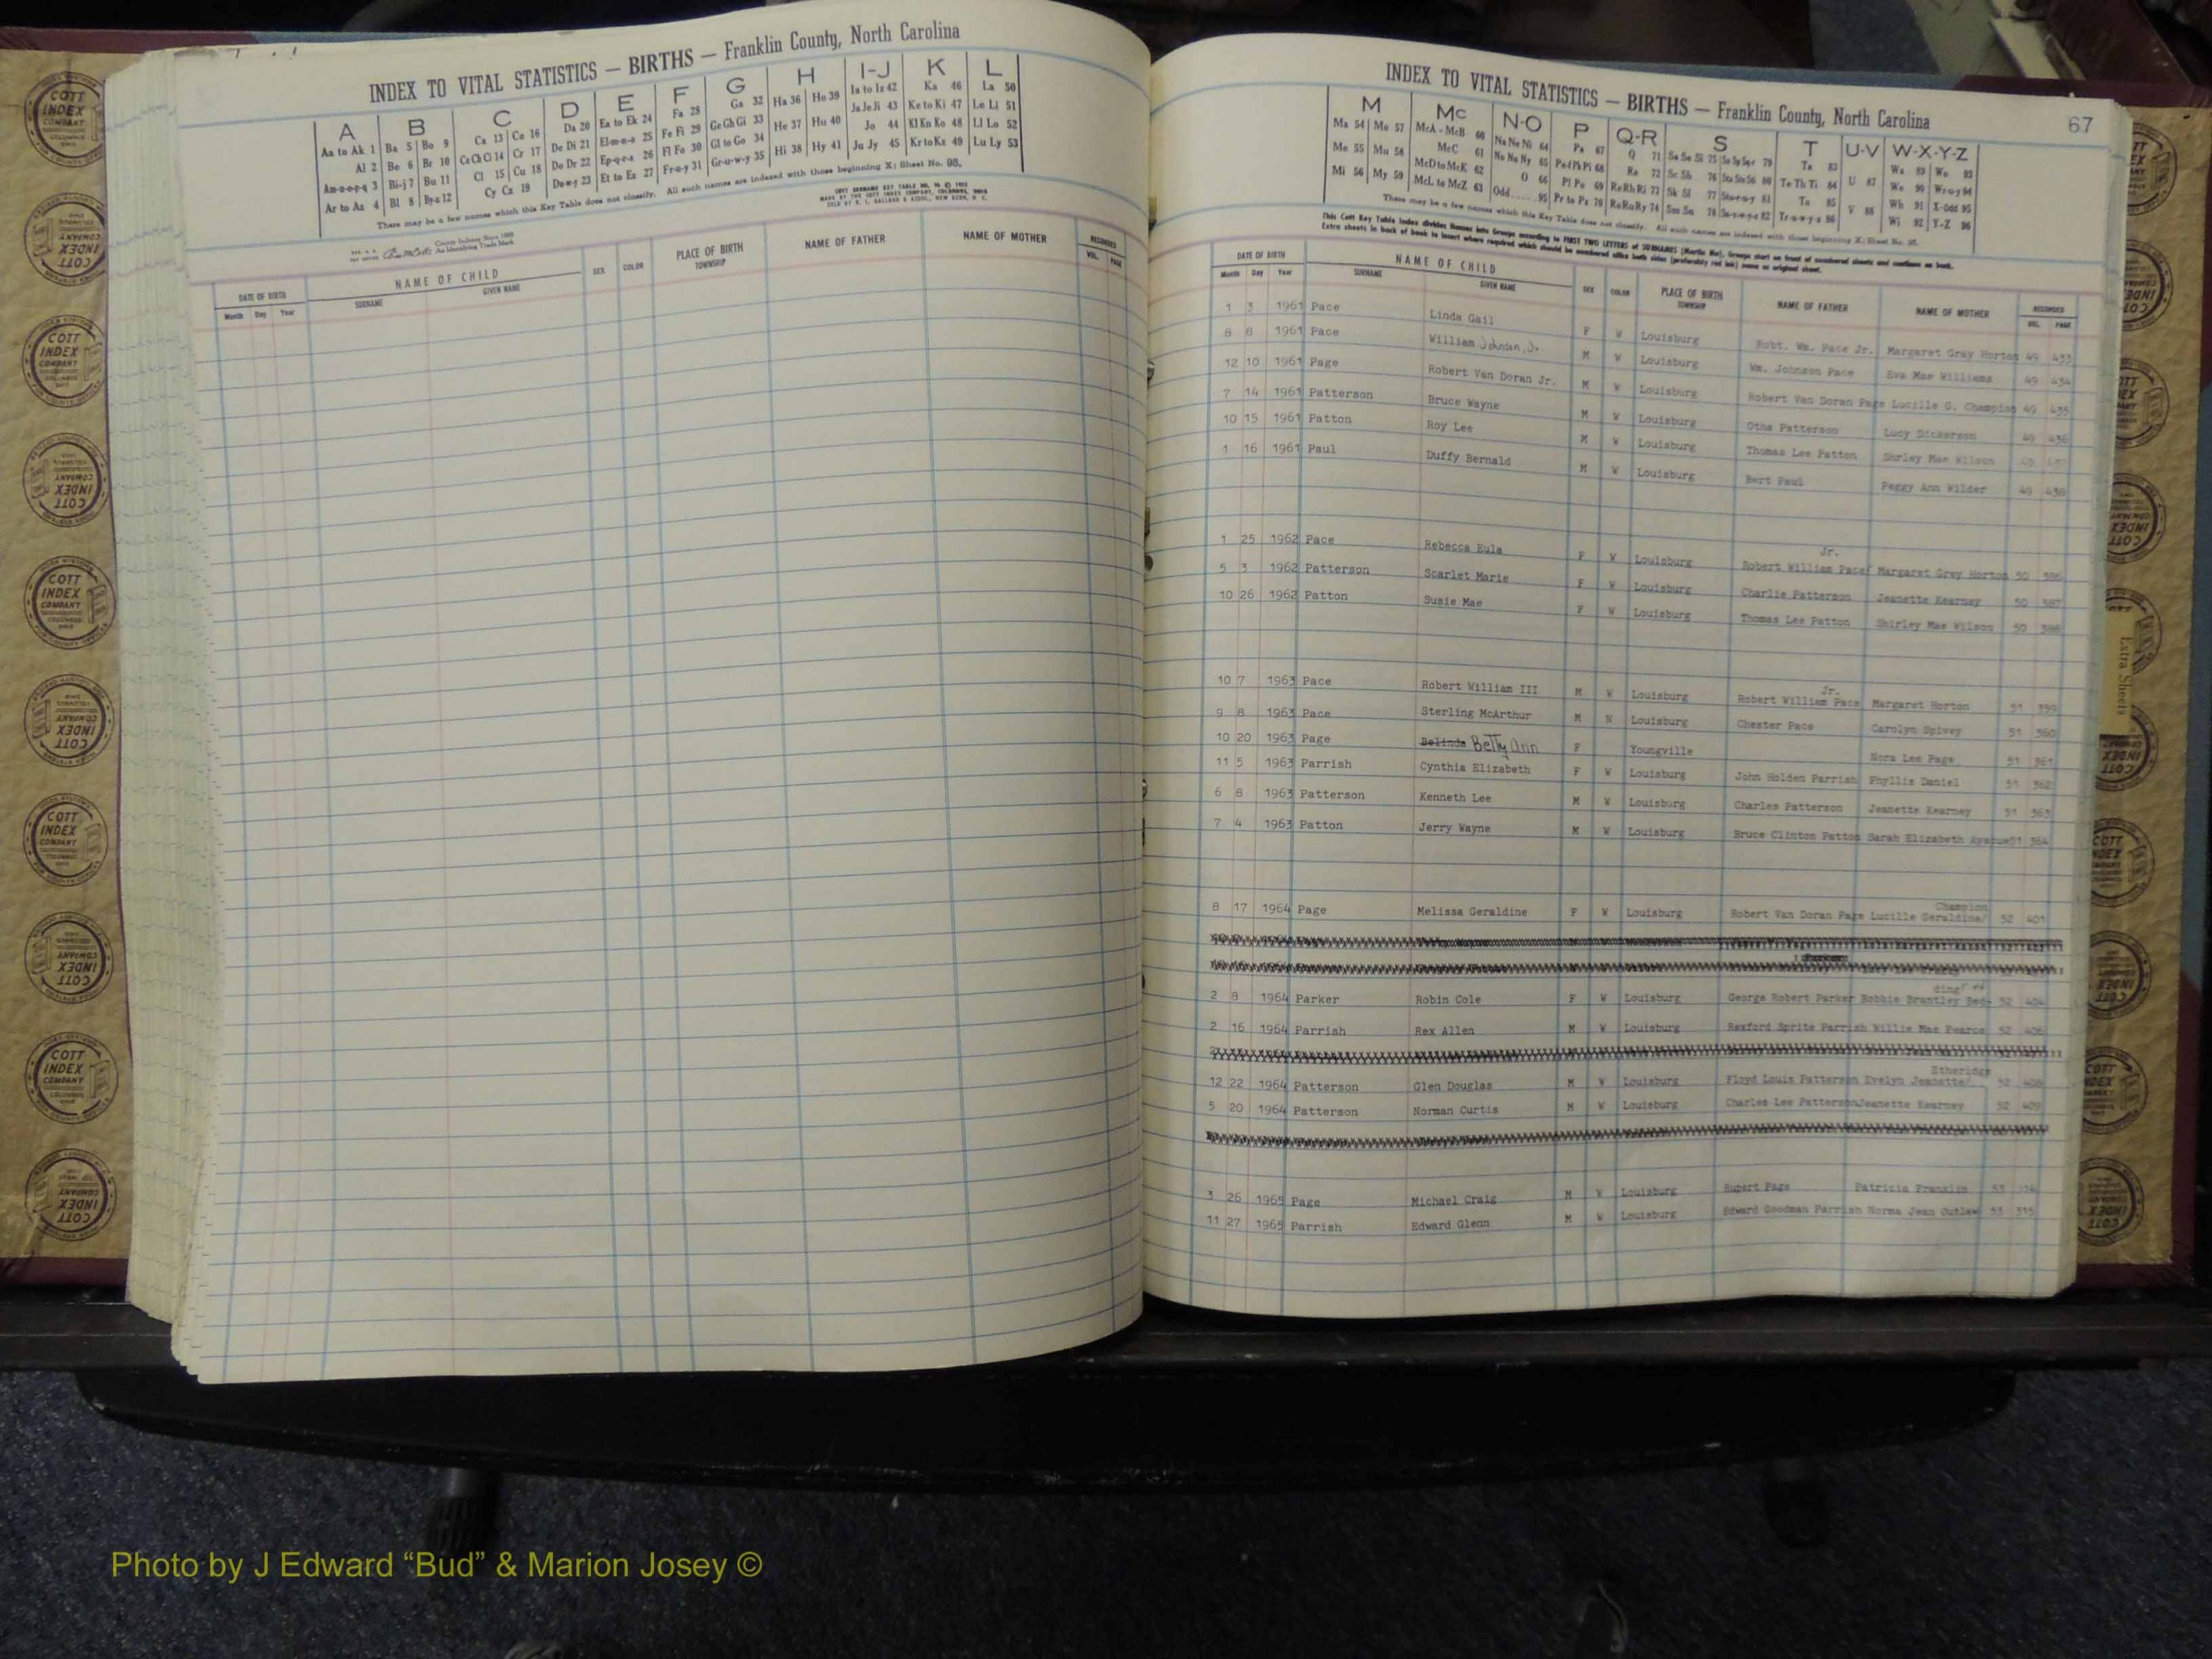 INDEX TO VITAL STATISTICS — BIRTHS — Franklin County, North Carolina
A B C D E F G H I-J K L
Aa to Ak 1 Ba 5 Bo 9 Ca 13 Co 16 Da 20 Ea to Ek 24 Fa 28 Ga 32 Ha 36 Ho 39 Ia to Iz 42 Ka 46 La 50
Al 2 Be 6 Br 10 Ce Ch Ci 14 Cr 17 De Di 21 El-m-n-o 25 Fe Fi 29 Ge Gh Gi 33 He 37 Hu 40 Ja Je Ji 43 Ke to Ki 47 Le Li 51
Am-n-o-p-q 3 Bi-j 7 Bu 11 Cl 15 Cu 18 Do Dr 22 Ep-q-r-s 26 Fl Fo 30 Gl to Go 34 Hi 38 Hy 41 Jo 44 Kl Kn Ko 48 Ll Lo 52
Ar to Az 4 Bl 8 By-z 12 Cy Cz 19 Du-w-y 23 Et to Ez 27 Fr-u-y 31 Gr-u-w-y 35 Ju Jy 45 Kr to Kz 49 Lu Ly 53
There may be a few names which this Key Table does not classify. All such names are indexed with those beginning X; Sheet No. 95.
County Indexes Since 1888
An Identifying Trade Mark
DATE OF BIRTH NAME OF CHILD SEX COLOR PLACE OF BIRTH NAME OF FATHER NAME OF MOTHER RECORDED
Month Day Year SURNAME GIVEN NAME TOWNSHIP VOL. PAGE
INDEX TO VITAL STATISTICS — BIRTHS — Franklin County, North Carolina 67
M Mc N-O P Q-R S T U-V W-X-Y-Z
Ma 54 Mo 57 McA - McB 60 Na Ne Ni 64 Pa 67 Q 71 Ta 83 Wa 89 Wo 93
Me 55 Mu 58 McC 61 No Nu Ny 65 Pe-f Ph Pi 68 Ra 72 Sc Sh 76 Te Th Ti 84 U 87 We 90 Wr-u-y 94
Mi 56 My 59 McD to McK 62 O 66 Pl Po 69 Re Rh Ri 73 Sk Sl 77 To 85 Wh 91 X-Odd 95
McL to McZ 63 Odd 95 Pr to Pz 70 Ro Ru Ry 74 Sm Sn 78 Tr-u-w-y-z 86 V 88 Wi 92 Y-Z 96
There may be a few names which this Key Table does not classify. All such names are indexed with those beginning X; Sheet No. 95.
This Cott Key Table Index divides Names into Groups according to FIRST TWO LETTERS of SURNAMES (Martin Ma). Groups start on front of numbered sheets and continue on back.
Extra sheets in back of book to insert where required which should be numbered alike both sides (preferably red ink) same as original sheet.
DATE OF BIRTH NAME OF CHILD SEX COLOR PLACE OF BIRTH NAME OF FATHER NAME OF MOTHER RECORDED
Month Day Year SURNAME GIVEN NAME TOWNSHIP VOL. PAGE
1 3 1961 Pace Linda Gail F W Louisburg Robt. Wm. Pace Jr. Margaret Gray Horton 49 433
8 8 1961 Pace William Johnson, Jr. M W Louisburg Wm. Johnson Pace Eva Mae Williams 49 434
12 10 1961 Page Robert Van Doran Jr. M W Louisburg Robert Van Doran Page Lucille G. Champion 49 435
7 14 1961 Patterson Bruce Wayne M W Louisburg Otha Patterson Lucy Dickerson 49 436
10 15 1961 Patton Roy Lee M W Louisburg Thomas Lee Patton Shrley Mae Wilson 49 437
1 16 1961 Paul Duffy Bernald M W Louisburg Bert Paul Peggy Ann Wilder 49 438
Jr.
1 25 1962 Pace Rebecca Eula F W Louisburg Robert William Pace/ Margaret Grey Horton 50 386
5 3 1962 Patterson Scarlet Marie F W Louisburg Charlie Patterson Jeanette Kearney 50 387
10 26 1962 Patton Susie Mae F W Louisburg Thomas Lee Patton Shirley Mae Wilson 50 388
Jr.
10 7 1963 Pace Robert William III M W Louisburg Robert William Pace Margaret Horton 51 359
9 8 1963 Pace Sterling McArthur M N Louisburg Chester Pace Carolyn Spivey 51 360
10 20 1963 Page Belinda Betty Ann F Youngville Nora Lee Page 51 361
11 5 1963 Parrish Cynthia Elizabeth F W Louisburg John Holden Parrish Phyllis Daniel 51 362
6 8 1963 Patterson Kenneth Lee M W Louisburg Charles Patterson Jeanette Kearney 51 363
7 4 1963 Patton Jerry Wayne M W Louisburg Bruce Clinton Patton Sarah Elizabeth Ayscue 51 364
Champion
8 17 1964 Page Melissa Geraldine F W Louisburg Robert Van Doran Page Lucille Geraldine/ 52 401
ding
2 8 1964 Parker Robin Cole F W Louisburg George Robert Parker Bobbie Brantley Bed- 52 404
2 16 1964 Parrish Rex Allen M W Louisburg Rexford Sprite Parrish Willie Mae Pearce 52 406
Etheridge
12 22 1964 Patterson Glen Douglas M W Louisburg Floyd Louis Patterson Evelyn Jeanette/ 52 408
5 20 1964 Patterson Norman Curtis M W Louisburg Charles Lee Patterson Jeanette Kearney 52 409
3 26 1965 Page Michael Craig M W Louisburg Rupert Page Patricia Franklin 53 314
11 27 1965 Parrish Edward Glenn M W Louisburg Edward Goodman Parrish Norma Jean Outlaw 53 315
Extra Sheets
COTT INDEX COMPANY COLUMBUS OHIO
Photo by J Edward “Bud” & Marion Josey ©